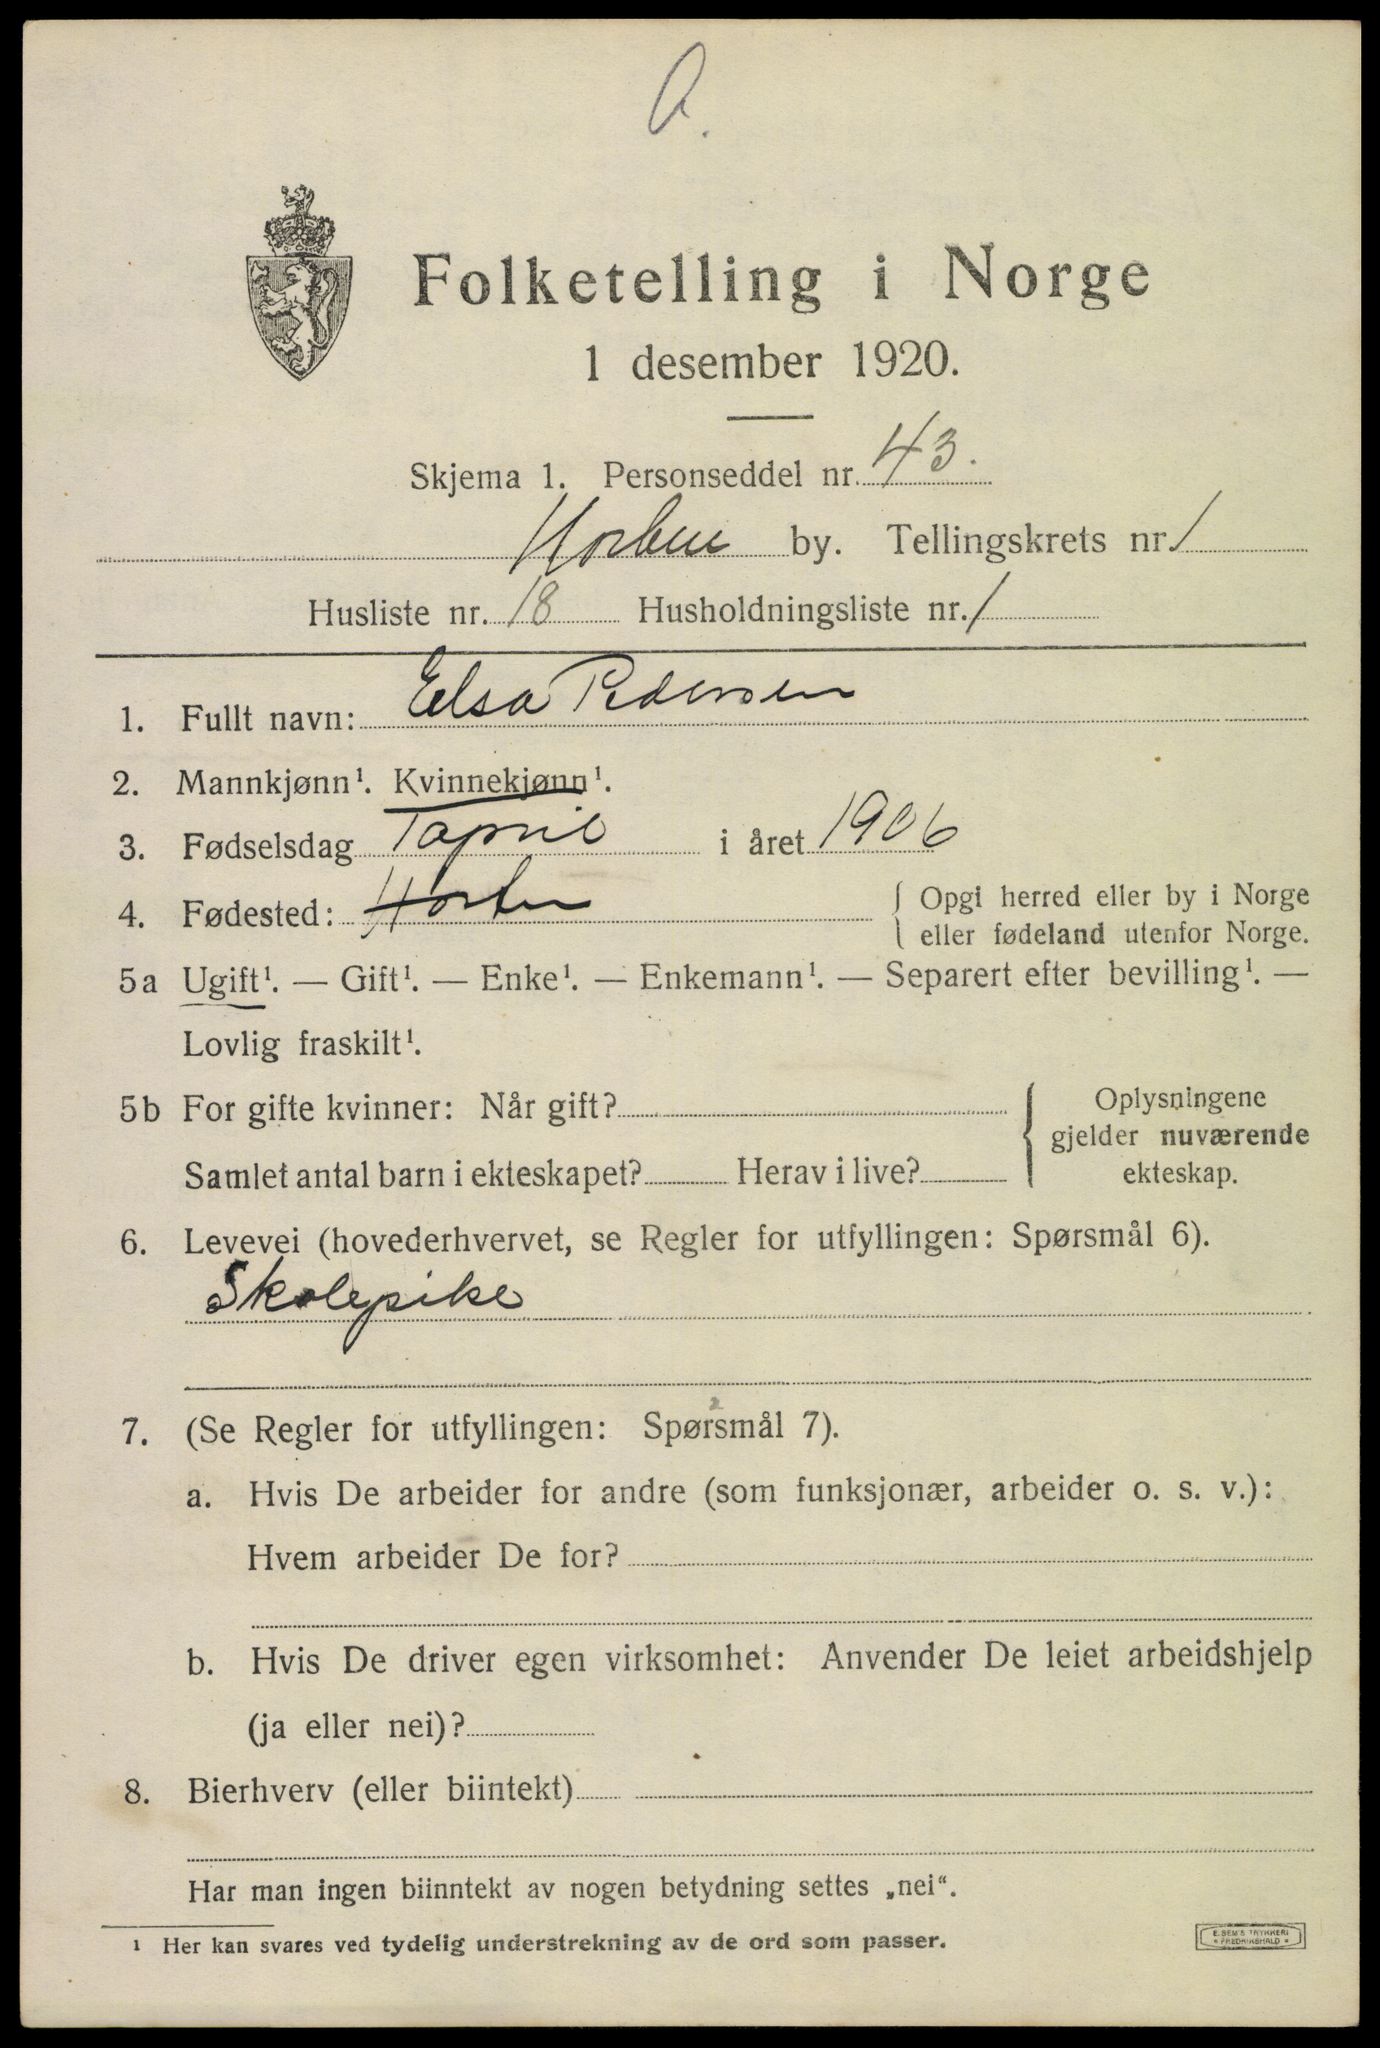 A.
Folketelling i Norge
1 desember 1920.
Skjema 1. Personseddel nr. 43.
Horten by. Tellingskrets nr. 1
Husliste nr. 18 Husholdningsliste nr. 1
1. Fullt navn: Elsa Pedersen
2. Mannkjønn¹. Kvinnekjønn¹.
3. Fødselsdag 7 april i året 1906
4. Fødested: Horten { Opgi herred eller by i Norge
eller fødeland utenfor Norge.
5a Ugift¹. — Gift¹. — Enke¹. — Enkemann¹. — Separert efter bevilling¹. —
Lovlig fraskilt¹.
5b For gifte kvinner: Når gift? { Oplysningene
gjelder nuværende
Samlet antal barn i ekteskapet? Herav i live? ekteskap.
6. Levevei (hovederhvervet, se Regler for utfyllingen: Spørsmål 6).
Skolepike
7. (Se Regler for utfyllingen: Spørsmål 7).
a. Hvis De arbeider for andre (som funksjonær, arbeider o. s. v.):
Hvem arbeider De for?
b. Hvis De driver egen virksomhet: Anvender De leiet arbeidshjelp
(ja eller nei)?
8. Bierhverv (eller biintekt)
Har man ingen biinntekt av nogen betydning settes „nei“.
¹ Her kan svares ved tydelig understrekning av de ord som passer.
E. SEM'S TRYKKERI
FREDRIKSHALD